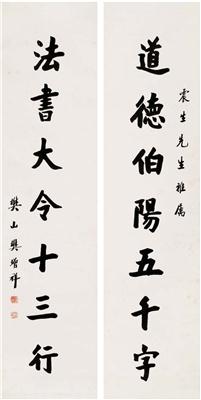 震生先生雅属
道德伯陽五千字
法書大令十三行
樊山樊增祥